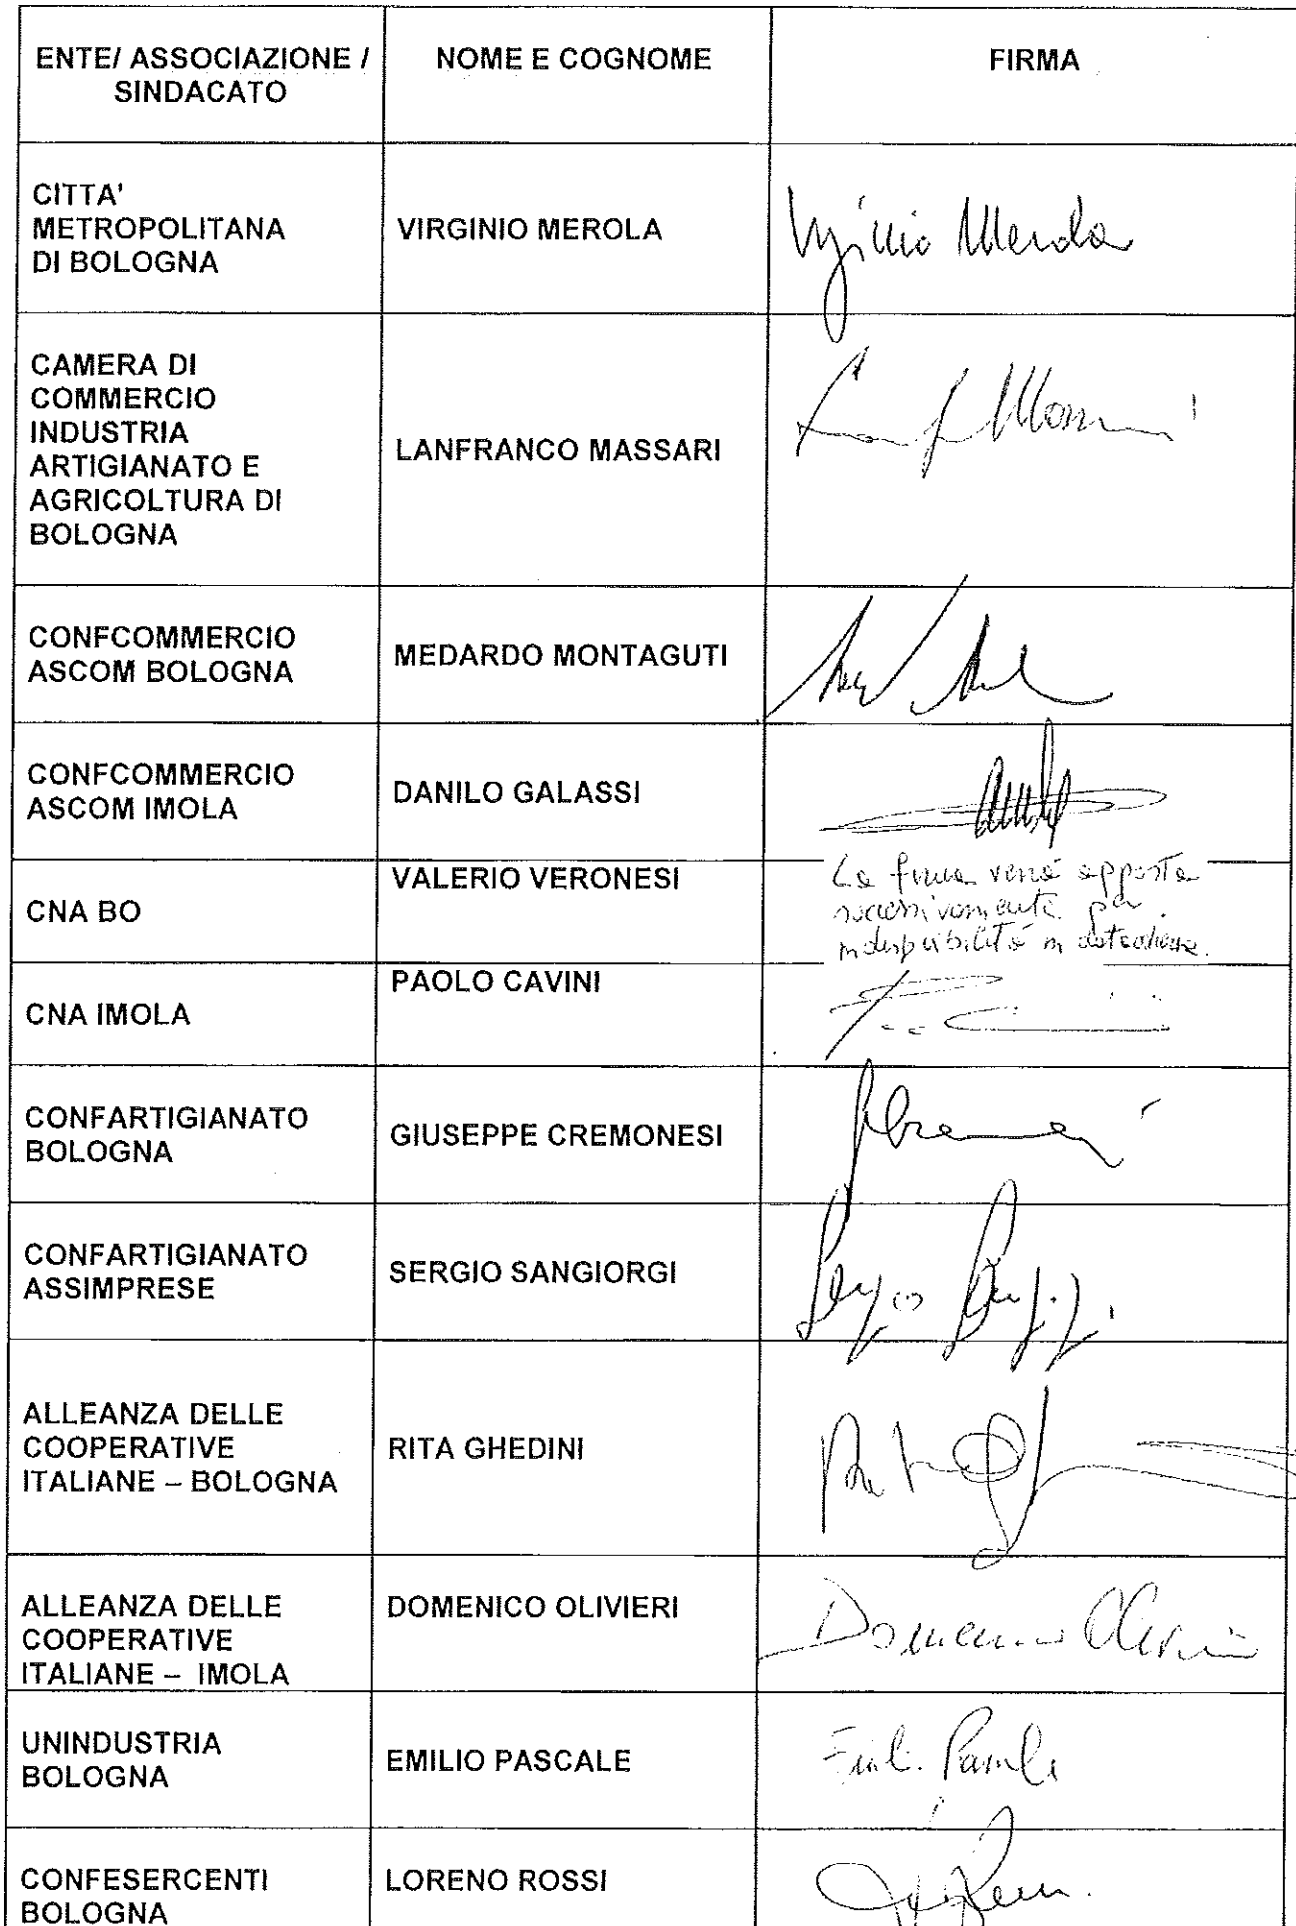 ENTE/ ASSOCIAZIONE /
SINDACATO
NOME E COGNOME
FIRMA
CITTA'
METROPOLITANA
DI BOLOGNA
VIRGINIO MEROLA
Virginio Merola
CAMERA DI
COMMERCIO
INDUSTRIA
ARTIGIANATO E
AGRICOLTURA DI
BOLOGNA
LANFRANCO MASSARI
CONFCOMMERCIO
ASCOM BOLOGNA
MEDARDO MONTAGUTI
CONFCOMMERCIO
ASCOM IMOLA
DANILO GALASSI
CNA BO
VALERIO VERONESI
La firma verrà apposta
successivamente per
indisponibilità in data odierna.
CNA IMOLA
PAOLO CAVINI
CONFARTIGIANATO
BOLOGNA
GIUSEPPE CREMONESI
CONFARTIGIANATO
ASSIMPRESE
SERGIO SANGIORGI
ALLEANZA DELLE
COOPERATIVE
ITALIANE – BOLOGNA
RITA GHEDINI
ALLEANZA DELLE
COOPERATIVE
ITALIANE – IMOLA
DOMENICO OLIVIERI
Domenico Olivieri
UNINDUSTRIA
BOLOGNA
EMILIO PASCALE
CONFESERCENTI
BOLOGNA
LORENO ROSSI